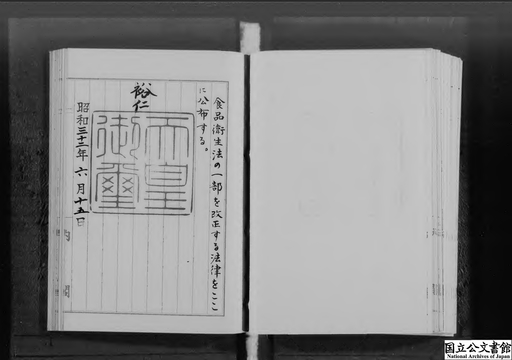 食品衛生法の一部を改正する法律をここ
に公布する。
裕仁
天皇
御璽
昭和三十二年六月十五日
国立公文書館
National Archives of Japan